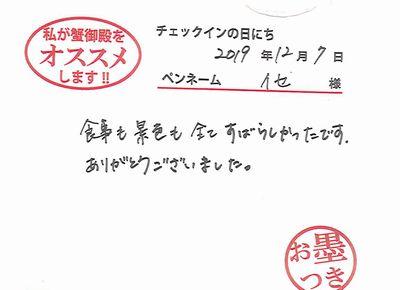 私が蟹御殿を
オススメ
します!!
チェックインの日にち
2019年12月7日
ペンネーム イセ 様
食事も景色も全てすばらしかったです.
ありがとうございました。
お墨
つき